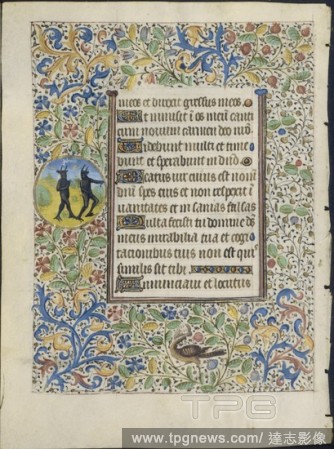 meos et direxit gressus meos
Et inmisit i os meu canti
cum novum carmen deo nro
Videbunt multi et time
bunt et sperabunt in dno
Beatus vir cuius est nom
dni spes eius et non respexit i
vanitates et insanias falsas
Multa fecisti tu domine de
meus mirabilia tua et cogi
tationibus tuis non est qui
similis sit tibi
Annunciavi et locutus
TPG
www.tpgnews.com/ 達志影像